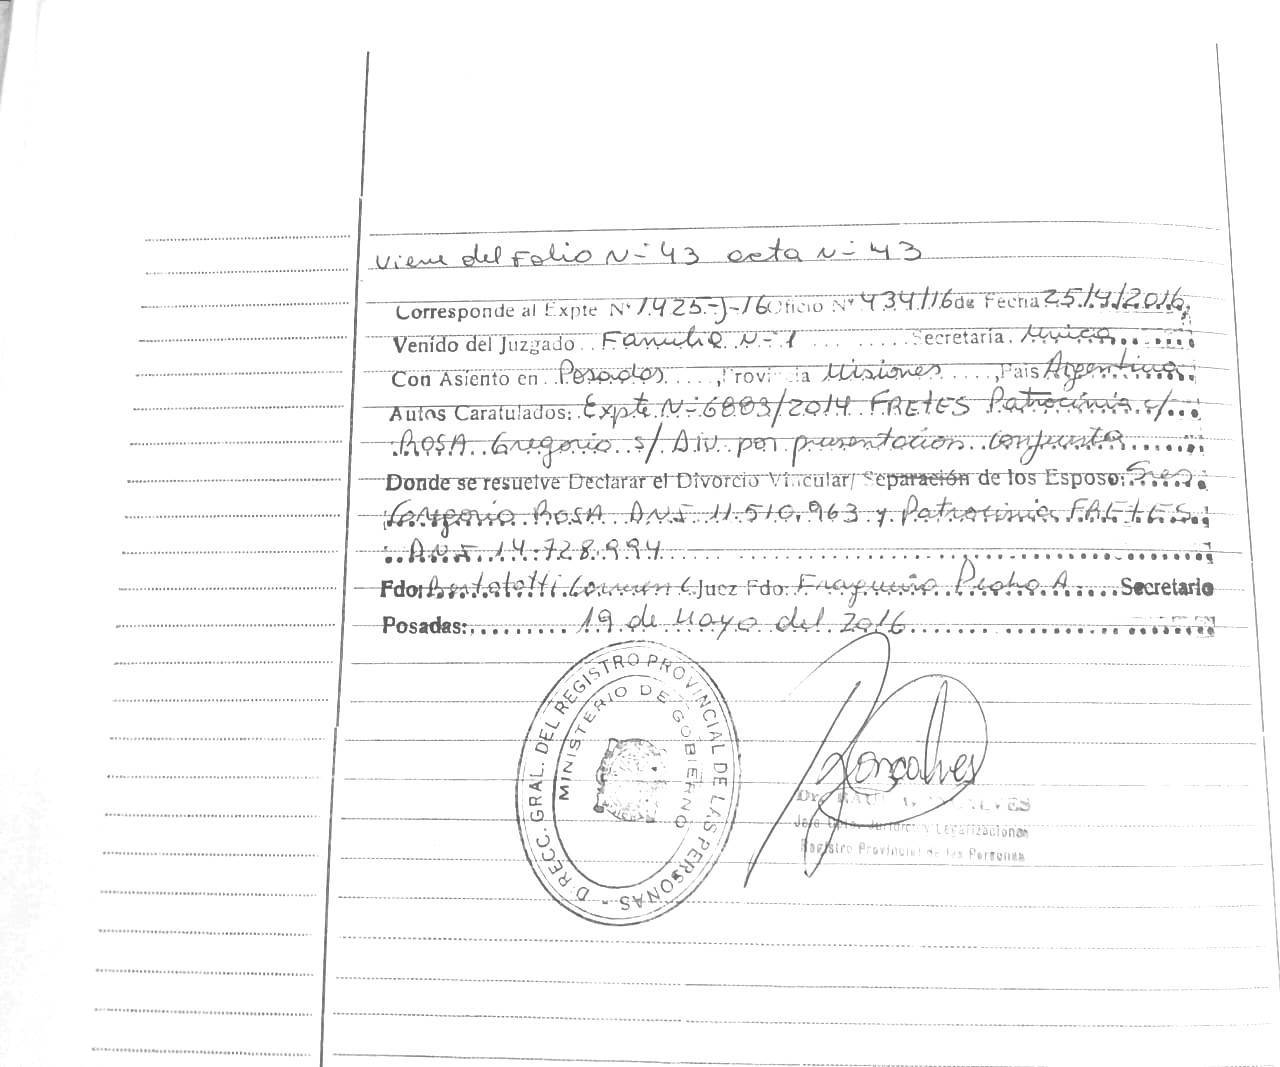 Viene del Folio N- 43 acta N- 43
Corresponde al Expte Nº 1425-J-16 Oficio Nº 434/16 de Fecha 25/4/2016,
Venido del Juzgado Familia N-1 Secretaría Unica
Con Asiento en Posadas, Provincia Misiones, País Argentina
Autos Caratulados: Expte N- 6883/2014 FRETES Patrocinia c/
ROSA Gregorio s/ Div. por presentacion conjunta
Donde se resuelve Declarar el Divorcio Vincular/ Separación de los Esposo: Sres
Gregorio ROSA DNI 11.510.963 y Patrocinia FRETES
DNI 14.728.994
Fdo: Bertolotti Carmen C Juez Fdo: Fragueiro Pedro A. Secretario
Posadas: 19 de Mayo del 2016
DIRECC. GRAL. DEL REGISTRO PROVINCIAL DE LAS PERSONAS -
MINISTERIO DE GOBIERNO
Gonçalves
Dr. RAUL GONCALVES
Jefe Dpto. Jurídico y Legalizaciones
Registro Provincial de las Personas